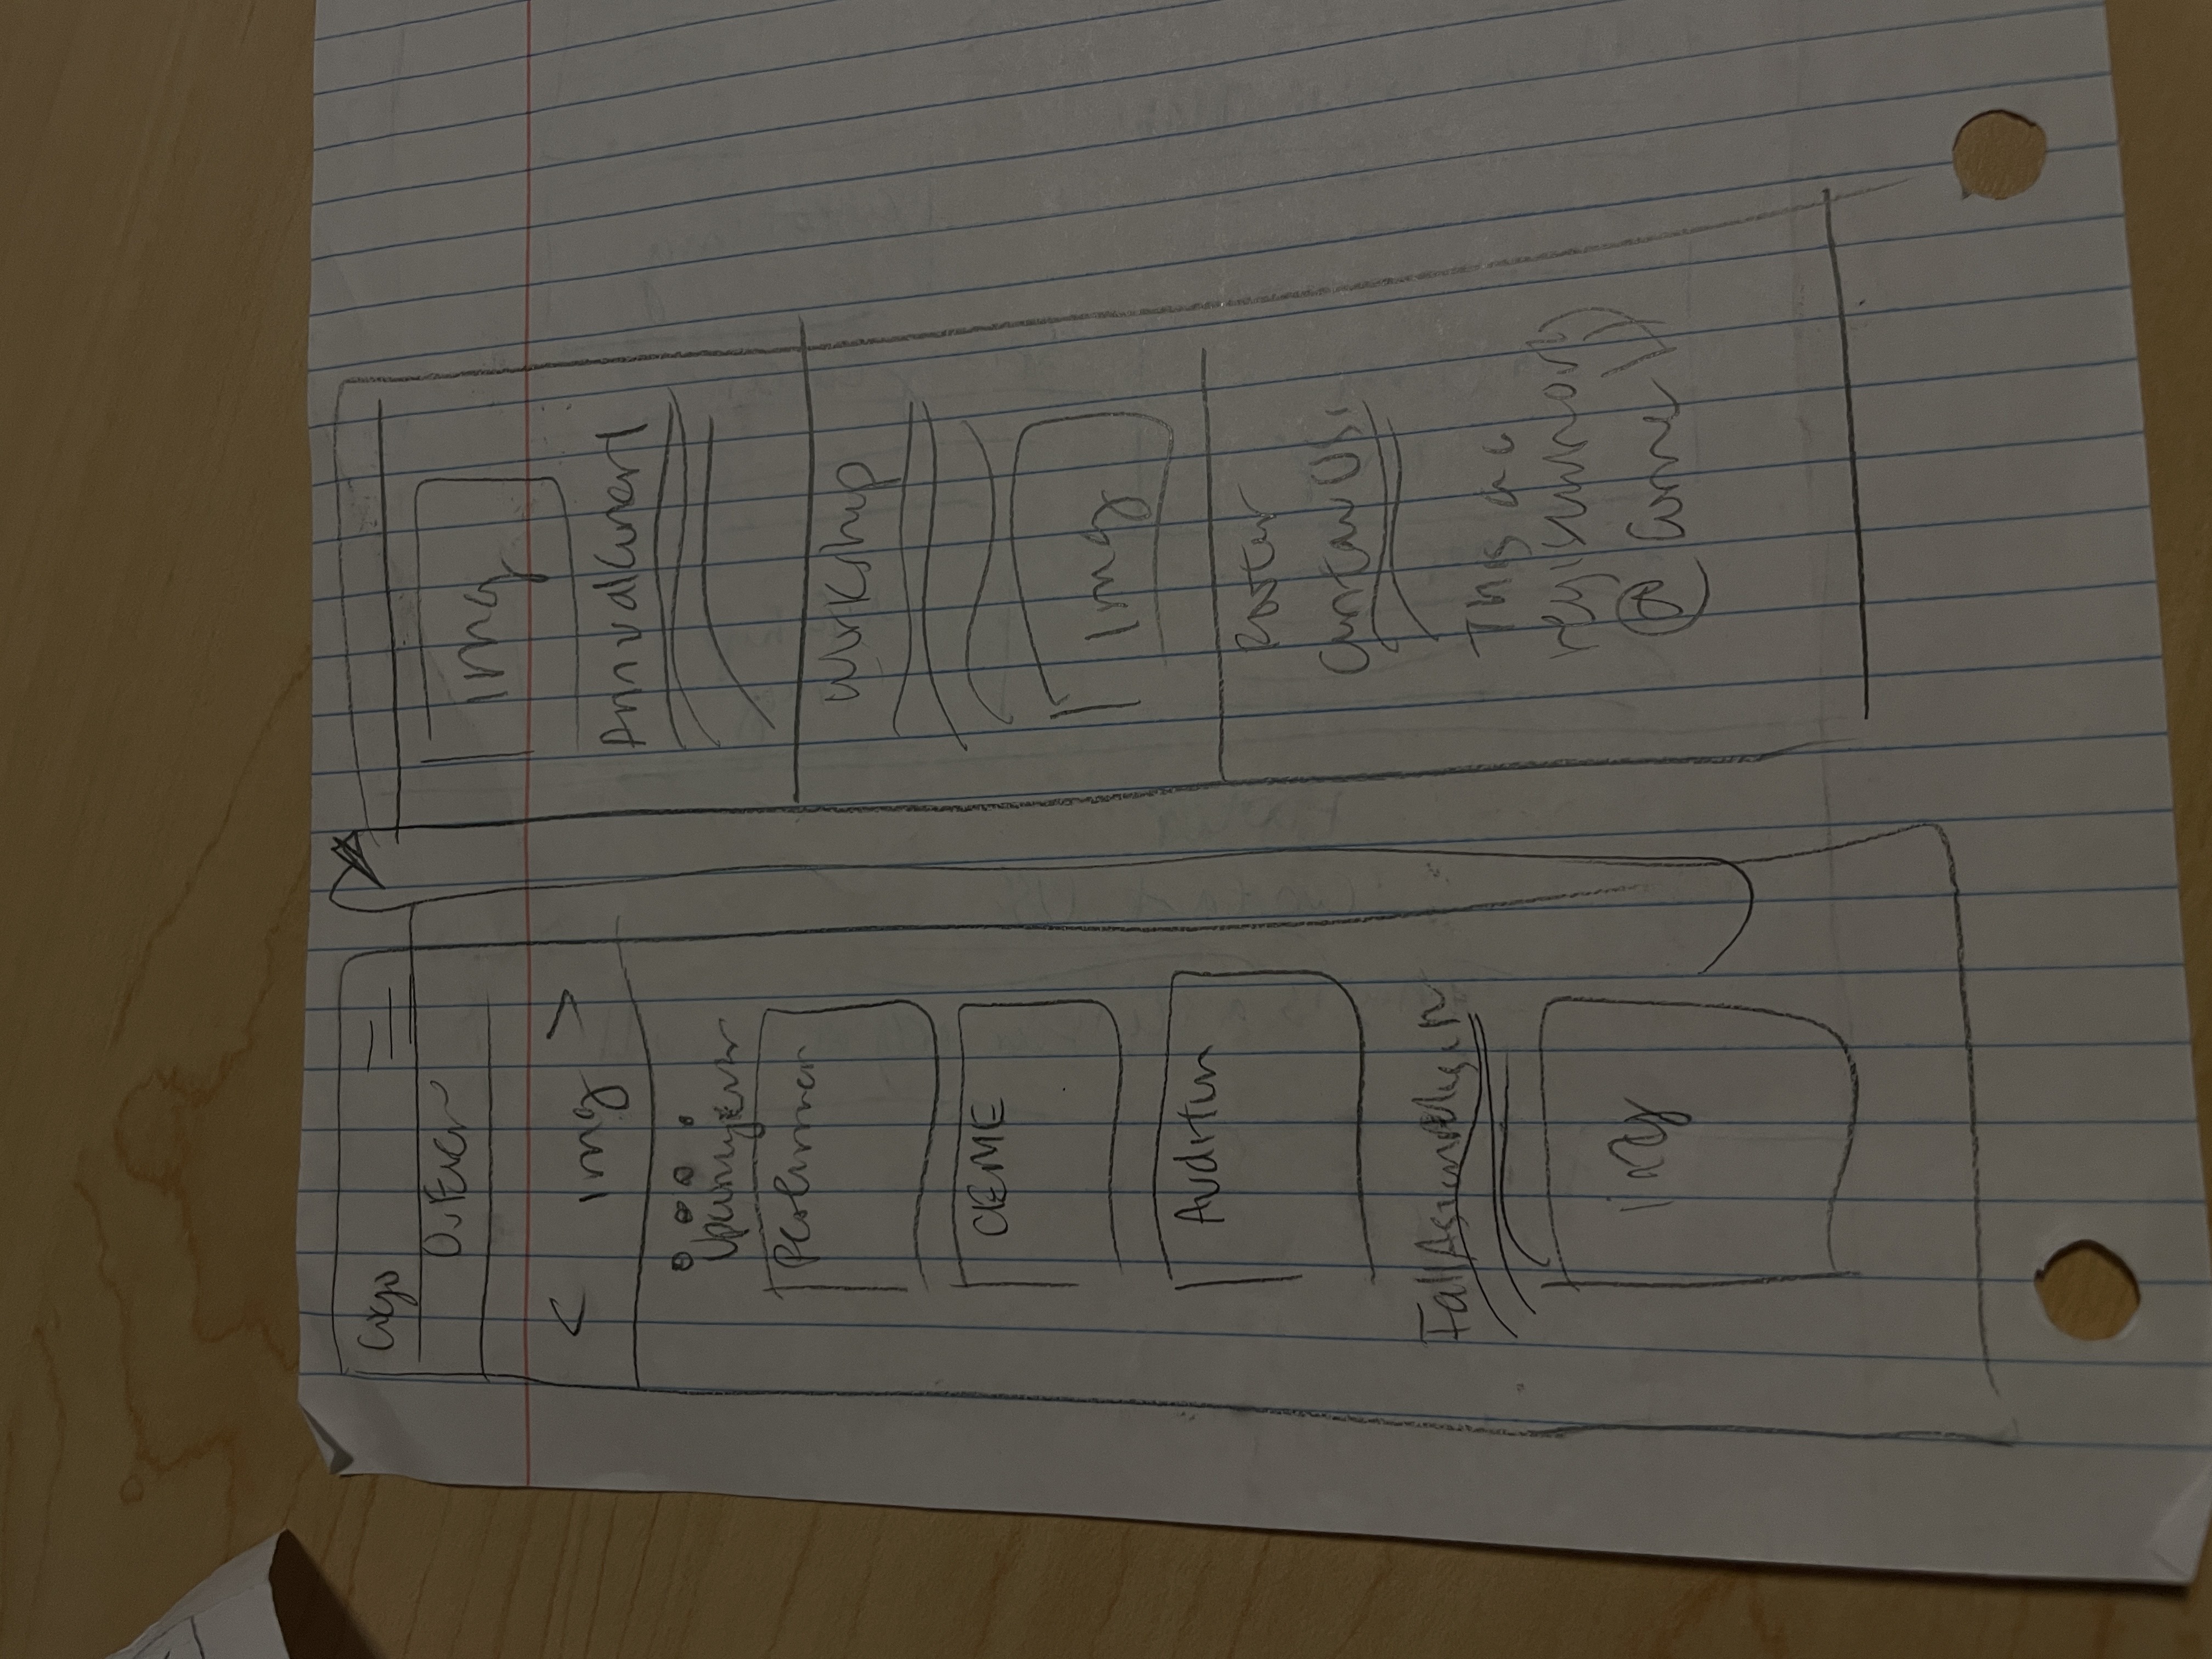 Logo
Our Event
< img >
Upcoming Event
Performan
CIEME
Audition
Fall Asian Music
img
img
Annual Concert
Workshop
img
Footer
Contact Us:
This is a
regis org
@ Cornell